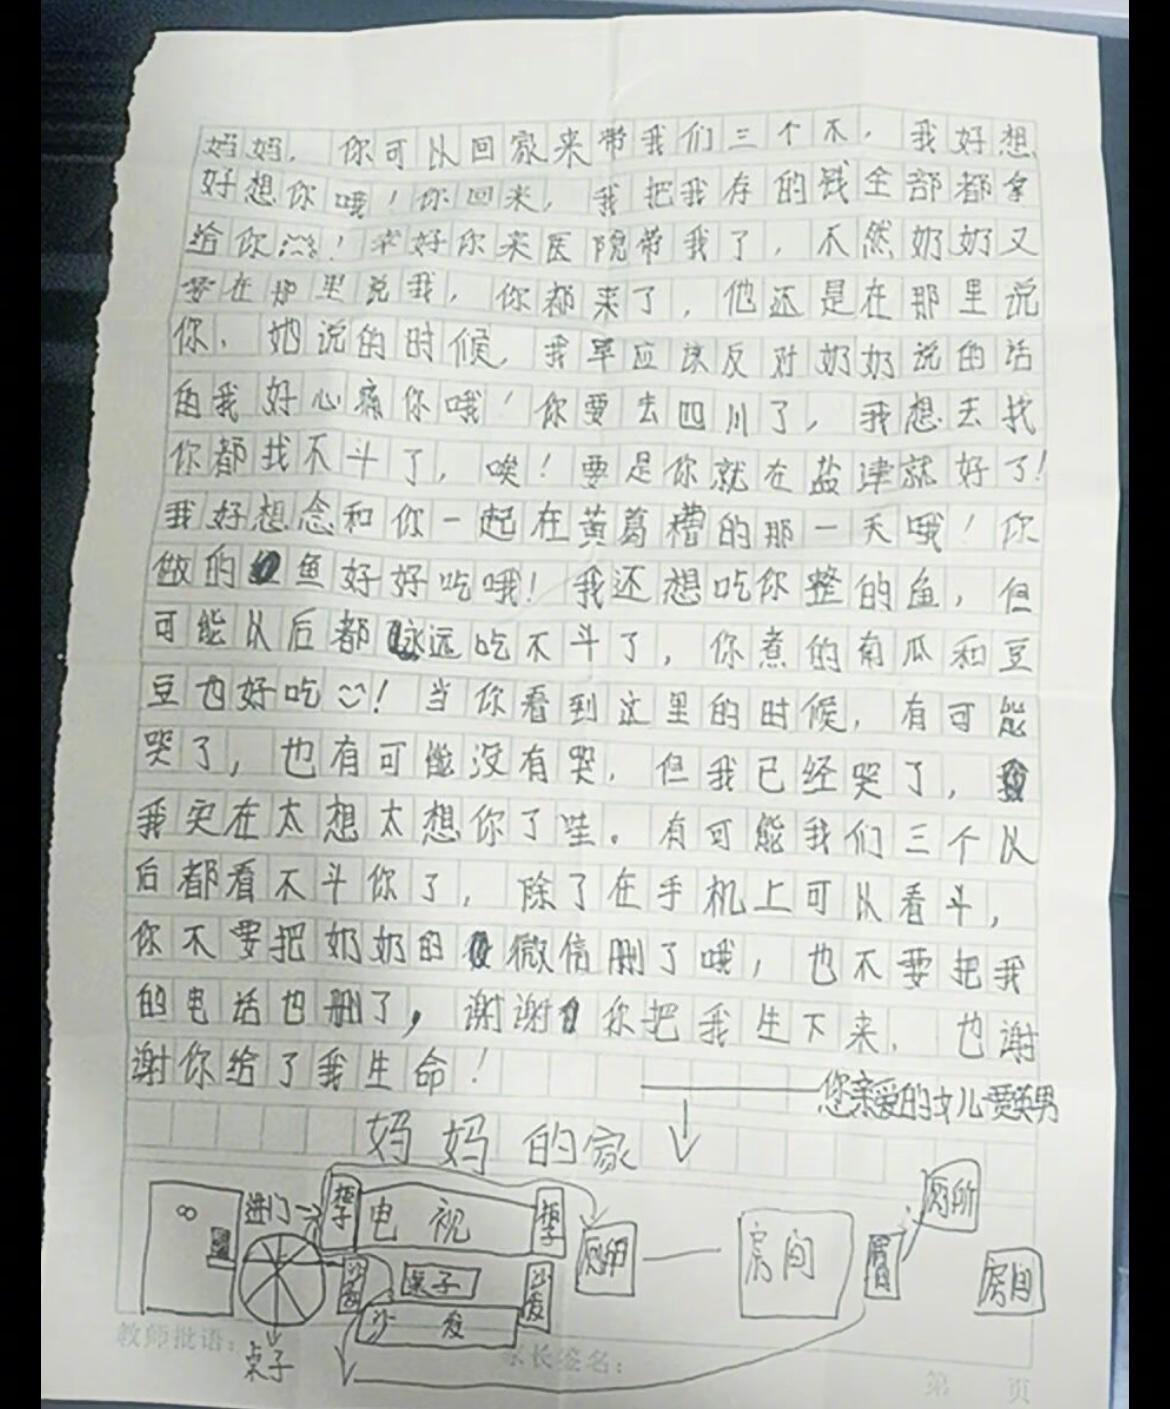 妈妈，你可以回家来带我们三个不，我好想
好想你哦！你回来，我把我存的钱全部都拿
给你！幸好你来医院带我了，不然奶奶又
要在那里说我，你都来了，他还是在那里说
你，她说的时候，我早应该反对奶奶说的话
的我好心痛你哦！你要去四川了，我想去找
你都找不斗了，唉！要是你就在盐津就好了！
我好想念和你一起在黄葛槽的那一天哦！你
做的鱼好好吃哦！我还想吃你整的鱼，但
可能以后都永远吃不斗了，你煮的南瓜和豆
豆也好吃！当你看到这里的时候，有可能
哭了，也有可能没有哭，但我已经哭了，
我实在太想太想你了哇。有可能我们三个以
后都看不斗你了，除了在手机上可以看斗，
你不要把奶奶的微信删了哦，也不要把我
的电话也删了，谢谢你把我生下来，也谢
谢你给了我生命！
——您亲爱的女儿贾英男
妈妈的家
进门 柜子 电视 柜子 厕所 房间 厨 厕所 房间
沙发 桌子 沙发
沙发
桌子
教师批语：
家长签名：
第 页